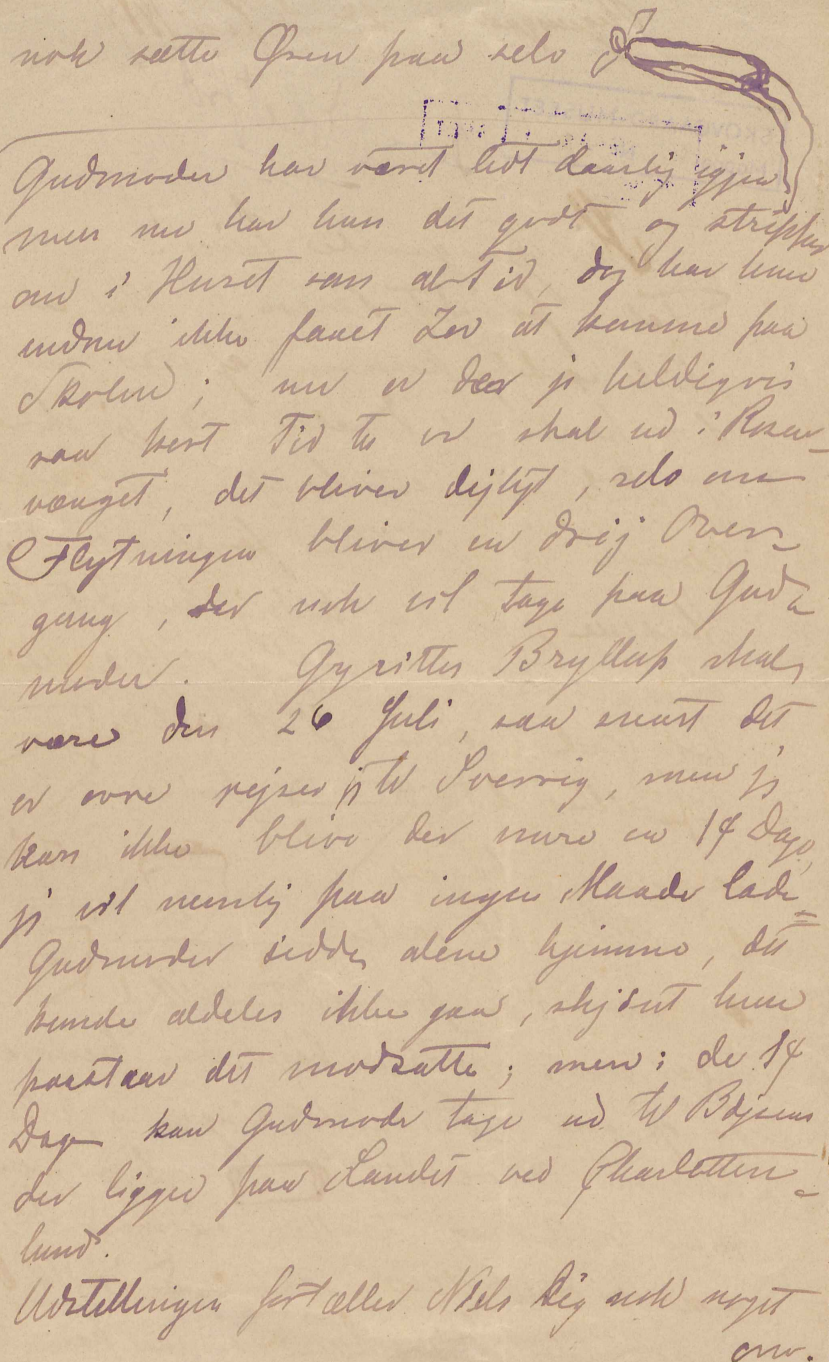 nok sætte Øsen paa selv
Gudmoder har været lidt daarlig igjen
men nu har hun det godt og stripper
om i Huset som altid, dog har hun
endnu ikke faaet Lov at komme paa
Skolen; nu er der jo heldigvis
saa kort Tid til vi skal ud i Rosen-
vænget, det bliver dejligt, selv om
Flytningen bliver en drøj Over-
gang, der nok vil tage paa Gud-
moder. Gyrittes Bryllup skal
være den 26 Juli, saa snart det
er ovre rejser jeg til Sverrig, men jeg
kan ikke blive der mere en 14 Dage,
jeg vil nemlig paa ingen Maade lade
Gudmoder sidde alene hjemme, det
kunde aldeles ikke gaa, skjönt hun
paastaar det modsatte; men i de 14
Dage kan Gudmoder tage ud til Bojsens
der ligger paa Landet ved Charlotten-
lund.
Udstillingen fortæller Niels Dig nok noget
om.